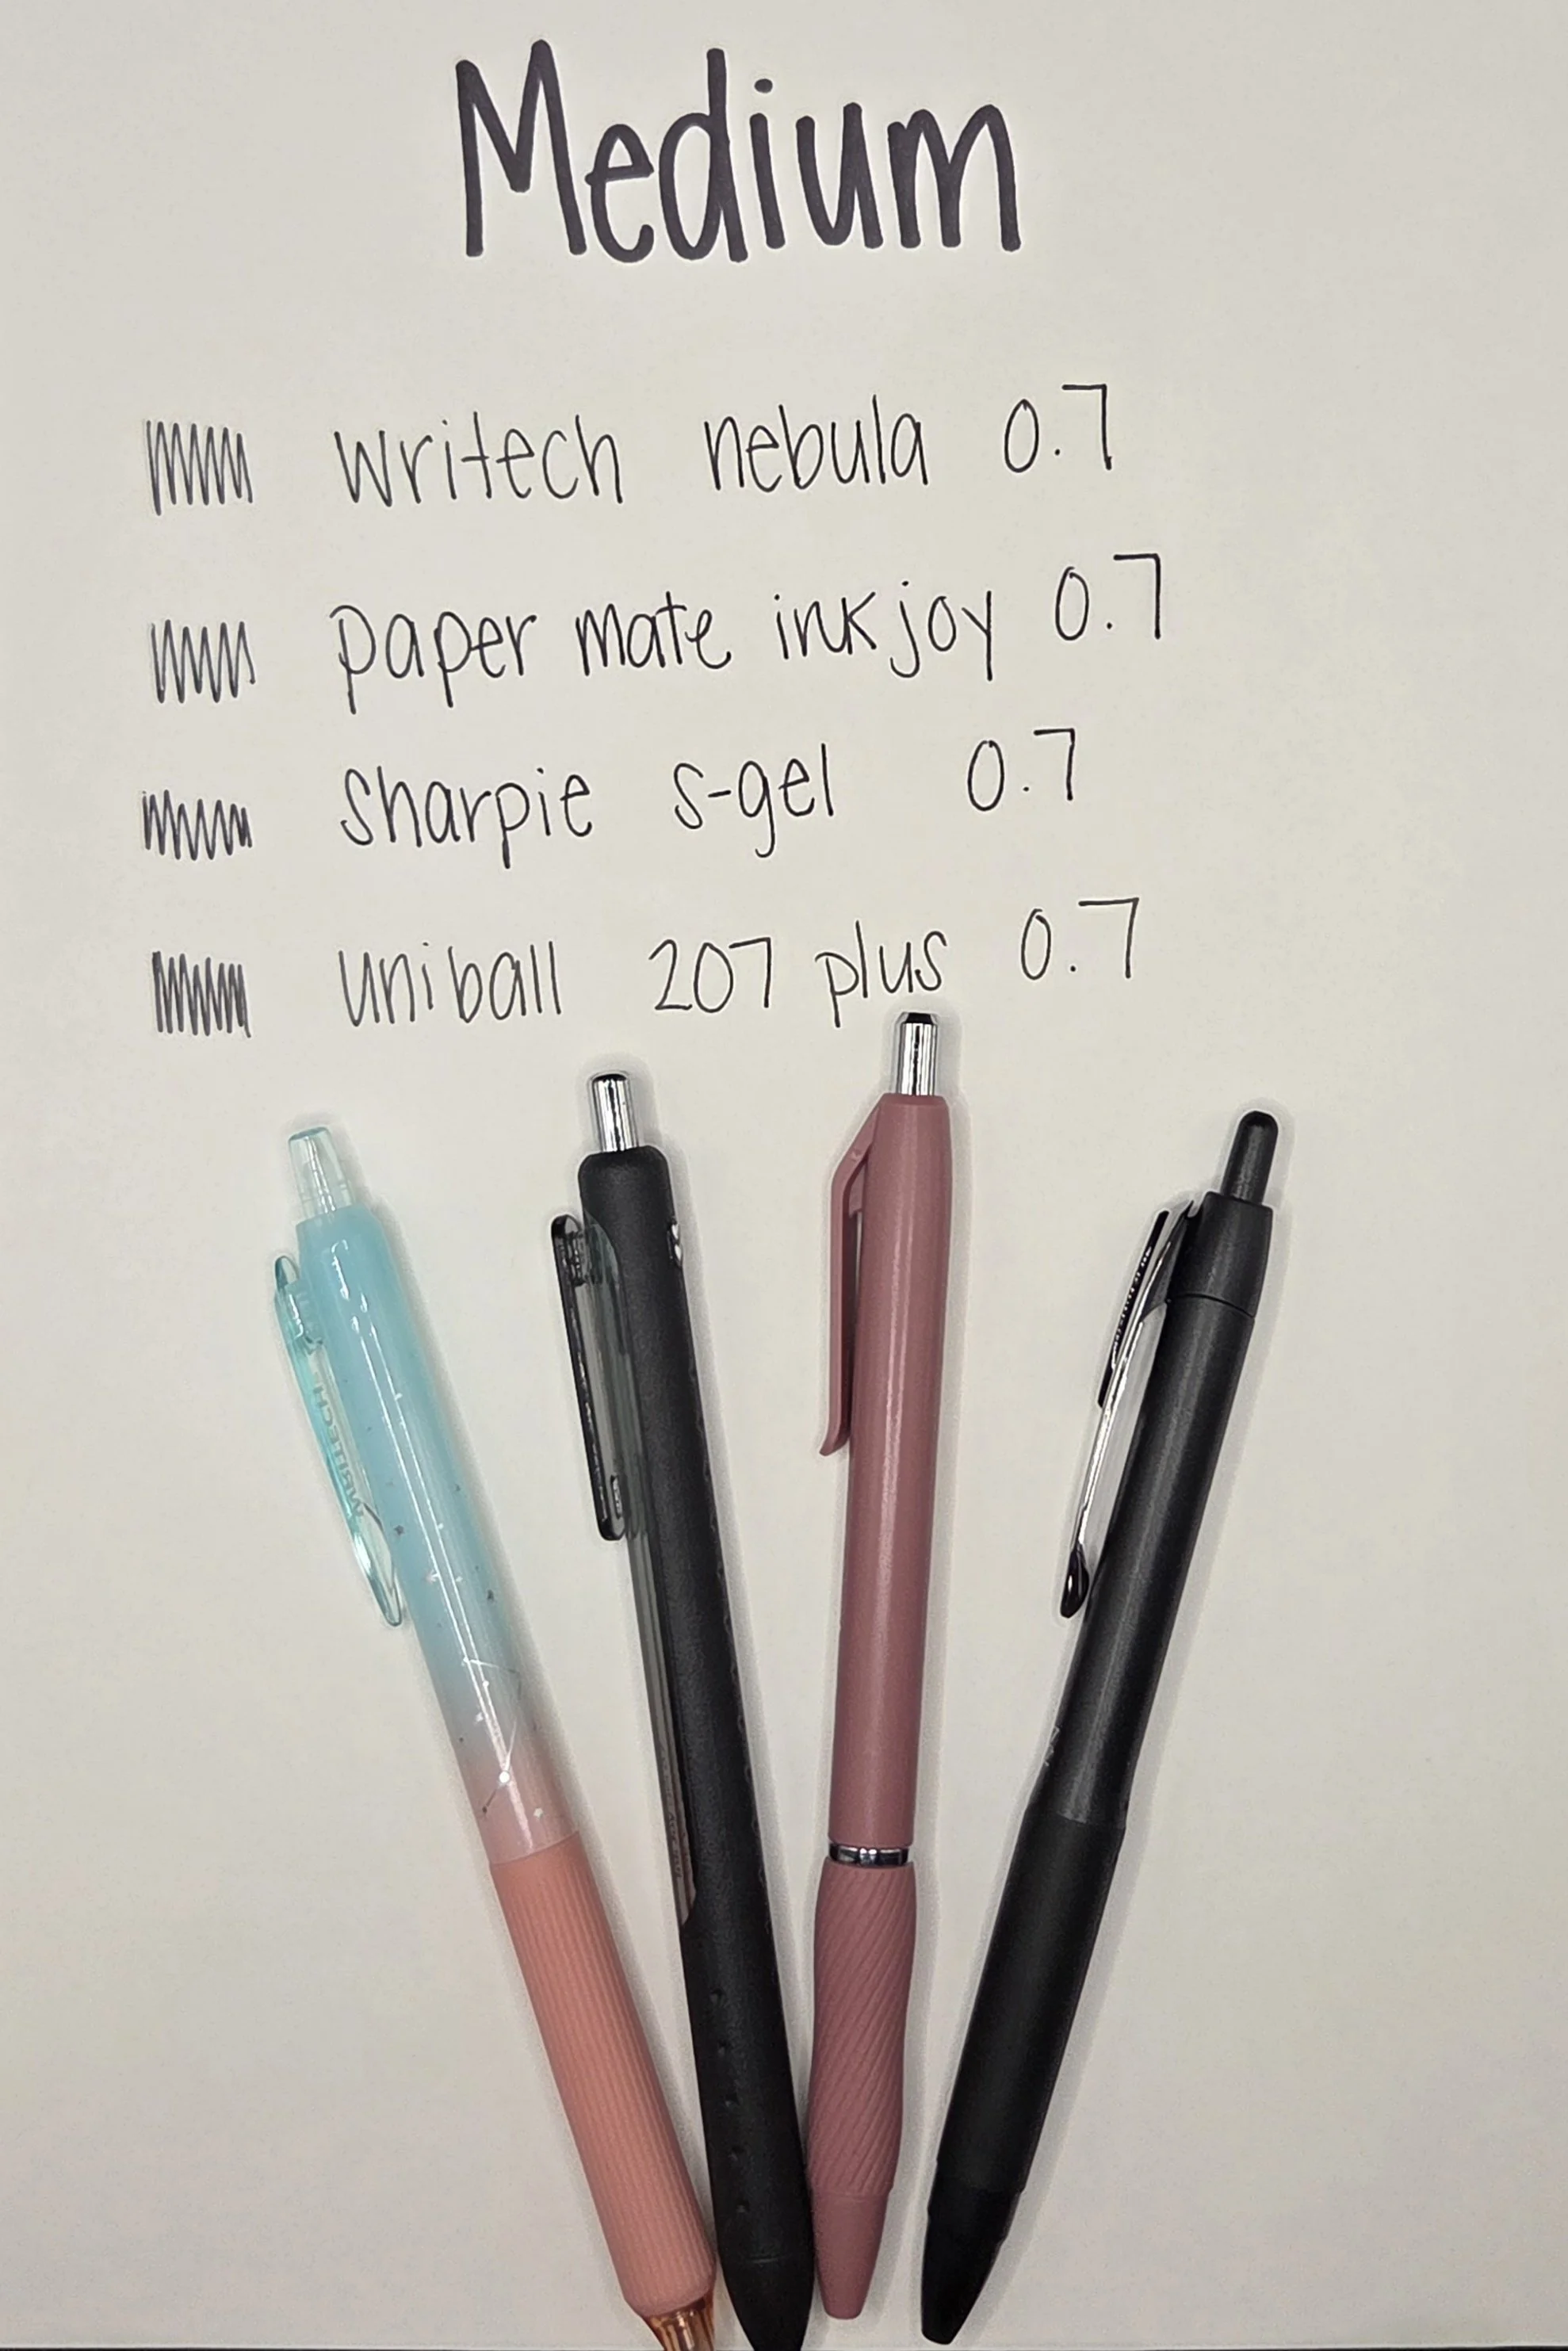 Medium
writech nebula 0.7
paper mate inkjoy 0.7
sharpie s-gel 0.7
uniball 207 plus 0.7
WRITECH